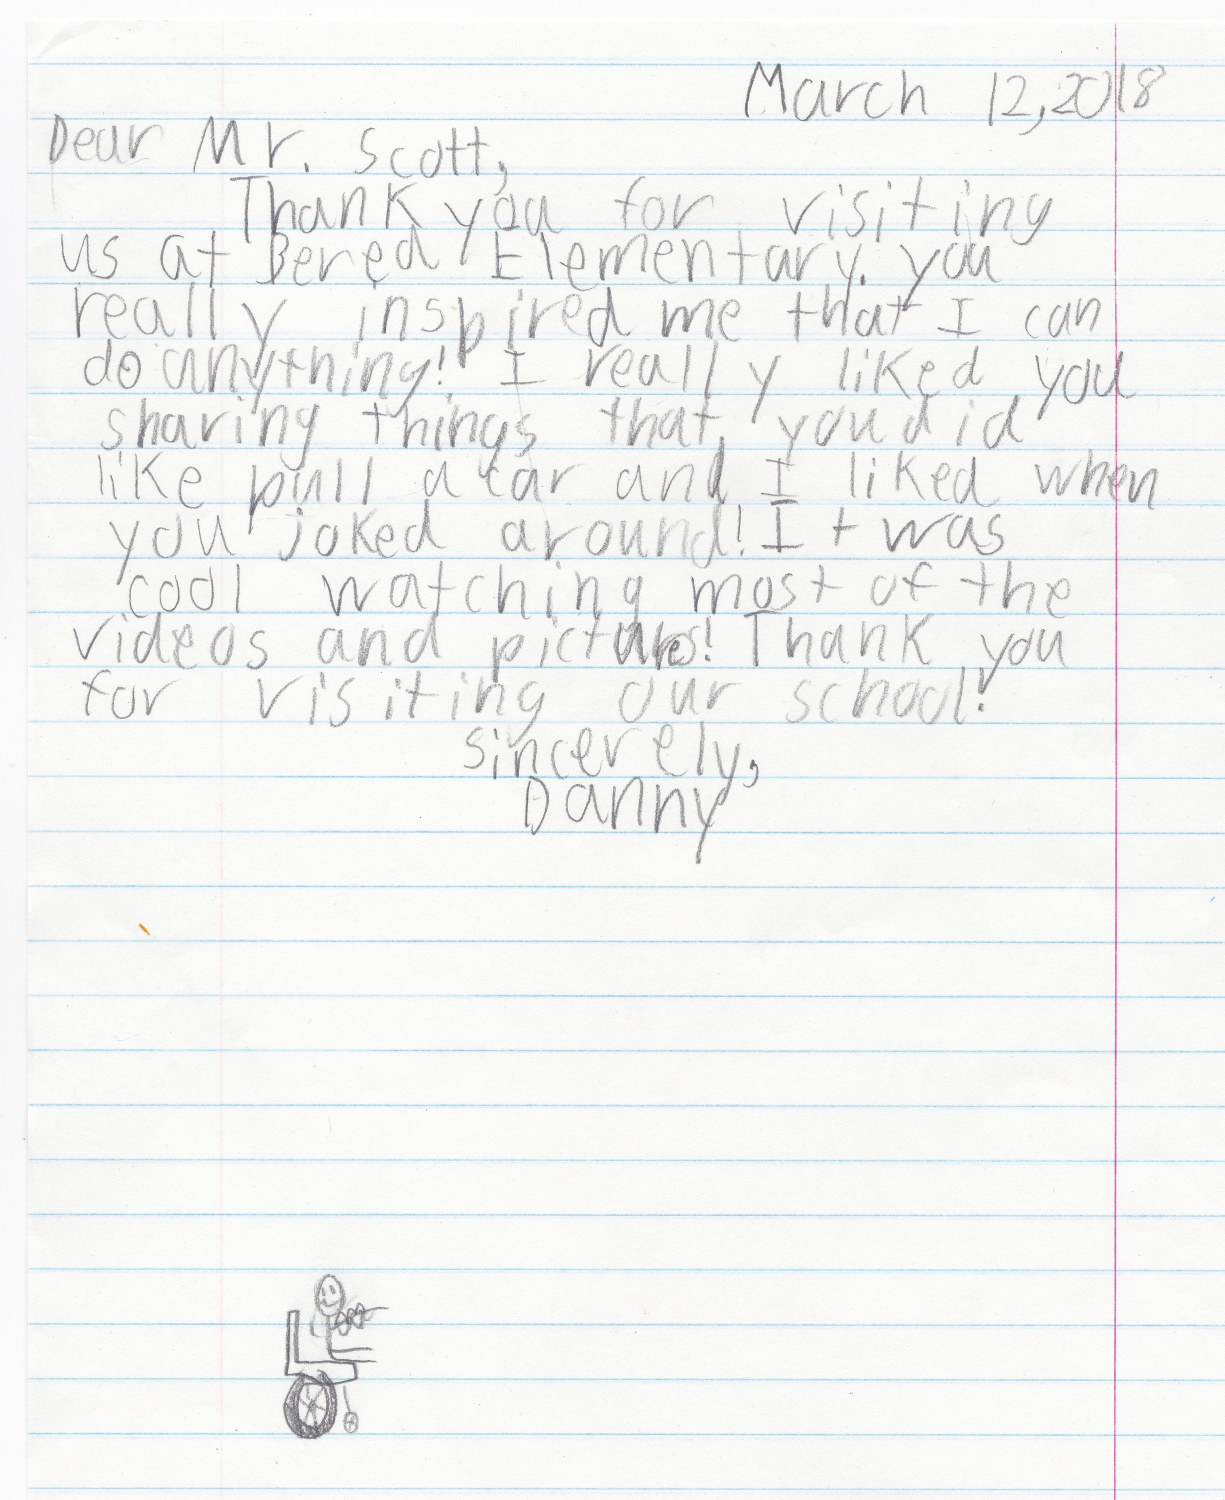 March 12, 2018
Dear Mr. Scott,
Thank you for visiting
us at Bered Elementary. you
really inspired me that I can
do anything! I really liked you
sharing things that you did
like pull a car and I liked when
you joked around! It was
cool watching most of the
videos and pictures! Thank you
for visiting our school!
sincerely,
Danny